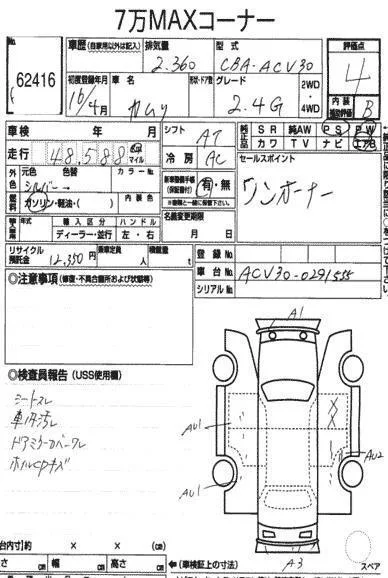 7万MAXコーナー
No.
62416
車歴(自家用以外は記入)
排気量
型式
2.360
CBA-ACV30
評価点
4
初度登録年月
車名
形状・ドア数
グレード
16/4月
カムリ
2.4G
2WD
4WD
内装
補助評価
B
車検 年 月
シフト
AT
純正
SR 純AW PS PW
カワ TV ナビ エアB
走行
48,588 km マイル
冷房
AC
セールスポイント
ワンオーナー
外色
元色 色替
カラーNo.
シルバー→
燃料
ガソリン・軽油・( )
内装色
新車整備手帳
(保証書付)
有・無
輸入車
年式
輸入区分
ハンドル
ディーラー・並行
左・右
名義変更期限
月 日
リサイクル預託金
12,350円
乗車定員
人
積載量
t
登録No.
車台No.
ACV30-0291555
シリアルNo.
◎注意事項(修復・不具合箇所および状態等)
A1
◎検査員報告(USS使用欄)
シートスレ
車内汚レ
ドアミラーカバーワレ
ホイルCPキズ
AU1
AU2
AU1
A3
台内寸)約 × × (cm)
さ cm 幅 cm 高さ cm
←(車検証上の寸法)
スペア